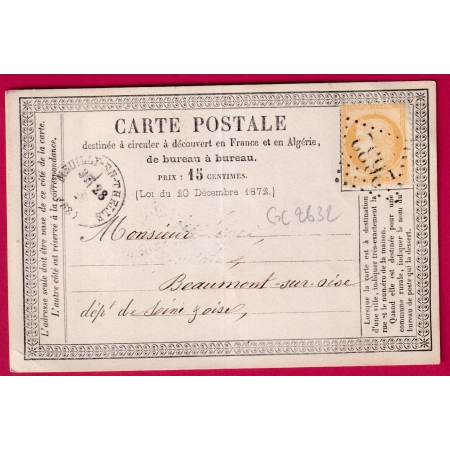 CARTE POSTALE
destinée à circuler à découvert en France et en Algérie,
de bureau à bureau.
PRIX : 15 CENTIMES.
(Loi du 20 Décembre 1872.)
GC 2632
NEUILLY-EN-THELLE
28
Monsieur
à
Beaumont-sur-oise
dépt de Seine &oise,
L'adresse seule doit être mise de ce côté de la carte.
L'autre côté est réservé à la correspondance.
Lorsque la carte est à destination
d'une ville, indiquer très-exactement la
rue et le numéro de la maison.
Quand elle est destinée pour une
commune rurale, indiquer le nom du
bureau de poste qui la dessert.